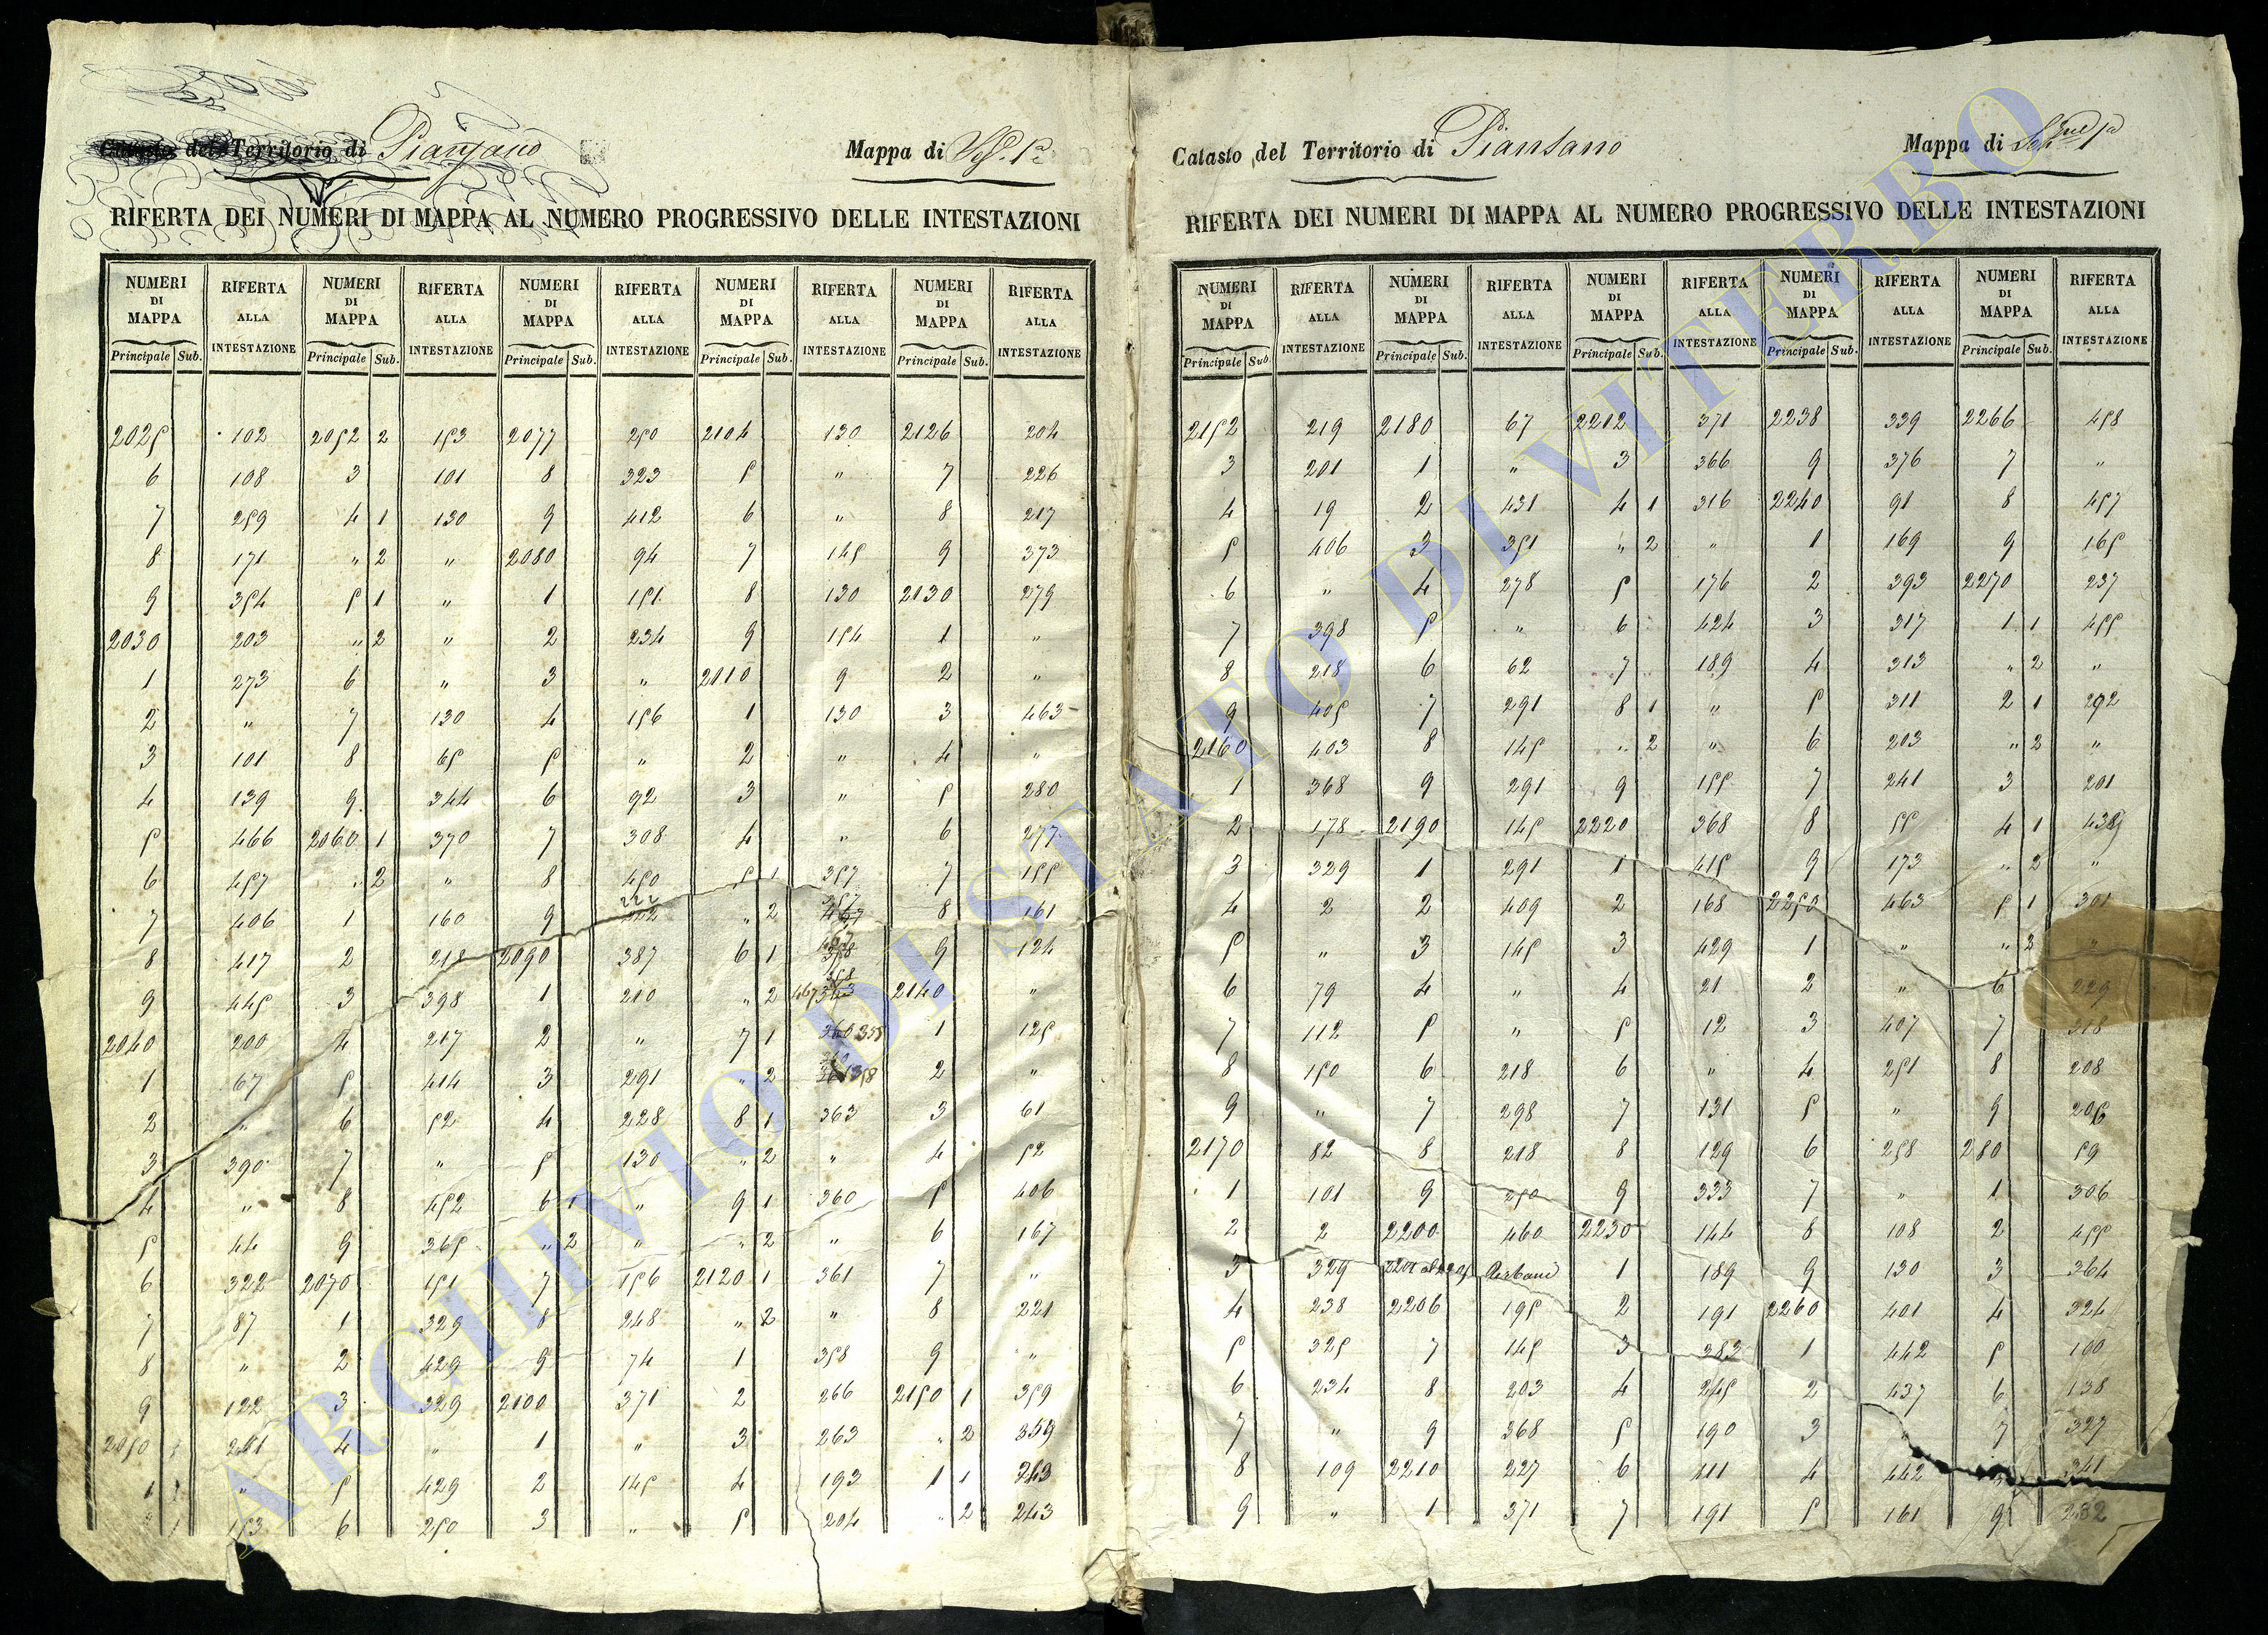 Catasto del Territorio di Pianzano Mappa di Sez. 1ª
RIFERTA DEI NUMERI DI MAPPA AL NUMERO PROGRESSIVO DELLE INTESTAZIONI
NUMERI DI MAPPA RIFERTA ALLA INTESTAZIONE NUMERI DI MAPPA RIFERTA ALLA INTESTAZIONE NUMERI DI MAPPA RIFERTA ALLA INTESTAZIONE NUMERI DI MAPPA RIFERTA ALLA INTESTAZIONE NUMERI DI MAPPA RIFERTA ALLA INTESTAZIONE
Principale Sub. Principale Sub. Principale Sub. Principale Sub. Principale Sub.
2025 102 2052 2 153 2077 250 2104 130 2126 204
6 108 3 101 8 323 5 " 7 226
7 259 4 1 130 9 412 6 " 8 217
8 171 " 2 " 2080 94 7 145 9 373
9 354 5 1 " 1 151 8 130 2130 279
2030 203 " 2 " 2 234 9 154 1 "
1 273 6 " 3 " 2110 9 2 "
2 " 7 130 4 156 1 130 3 463
3 101 8 65 5 " 2 " 4 "
4 139 9 344 6 92 3 " 5 280
5 466 2060 1 370 7 308 4 " 6 277
6 457 " 2 " 8 450 5 1 357 7 155
7 406 1 160 9 222 " 2 357 8 161
8 417 2 218 2090 387 6 1 9 124
9 445 3 398 1 210 " 2 2140 "
2040 200 4 217 2 " 7 1 1 125
1 67 5 414 3 291 " 2 2 "
2 " 6 52 4 228 8 1 363 3 61
3 390 7 " 5 130 " 2 " 4 52
4 " 8 452 6 1 " 9 1 360 5 406
5 44 9 365 " 2 " " 2 " 6 167
6 322 2070 151 7 156 2120 1 361 7 "
7 87 1 329 8 248 " 2 " 8 221
8 " 2 429 9 74 1 358 9 "
9 122 3 329 2100 371 2 266 2150 1 359
2050 4 " 1 " 3 263 " 2 359
1 " 5 429 2 145 4 193 1 1 243
153 6 250 3 " 5 204 " 2 243
Catasto del Territorio di Piansano Mappa di Sezne 1ª
RIFERTA DEI NUMERI DI MAPPA AL NUMERO PROGRESSIVO DELLE INTESTAZIONI
NUMERI DI MAPPA RIFERTA ALLA INTESTAZIONE NUMERI DI MAPPA RIFERTA ALLA INTESTAZIONE NUMERI DI MAPPA RIFERTA ALLA INTESTAZIONE NUMERI DI MAPPA RIFERTA ALLA INTESTAZIONE NUMERI DI MAPPA RIFERTA ALLA INTESTAZIONE
Principale Sub. Principale Sub. Principale Sub. Principale Sub. Principale Sub.
2152 219 2180 67 2212 371 2238 339 2266 458
3 201 1 " 3 366 9 376 7 "
4 19 2 431 4 1 316 2240 91 8 457
5 406 3 351 " 2 " 1 169 9 165
6 " 4 278 5 176 2 393 2270 237
7 398 5 " 6 424 3 317 1 1 455
8 218 6 62 7 189 4 313 " 2 "
9 405 7 291 8 1 " 5 311 2 1 292
2160 403 8 145 " 2 " 6 203 " 2 "
1 368 9 291 9 155 7 241 3 201
2 178 2190 145 2220 368 8 55 4 1
3 329 1 291 1 415 9 173 " 2 "
4 2 2 409 2 168 2250 463 5 1 301
5 " 3 145 3 429 1 " " 2 "
6 79 4 " 4 21 2 " 6 229
7 112 5 " 5 12 3 407 7 318
8 150 6 218 6 " 4 251 8 208
9 " 7 298 7 131 5 " 9
2170 82 8 218 8 129 6 258 280 59
1 101 9 250 9 333 7 " 1 306
2 2 2200 460 2230 144 8 108 2 455
3 329 2201 al 2205 1 189 9 130 3 364
4 238 2206 195 2 191 2260 401 4 324
5 325 7 145 3 383 1 442 5 100
6 234 8 203 4 245 2 437 6 138
7 " 9 368 5 190 3 7 327
8 109 2210 227 6 411 4 442 341
9 " 1 371 7 191 5 161 9 232
ARCHIVIO DI STATO DI VITERBO